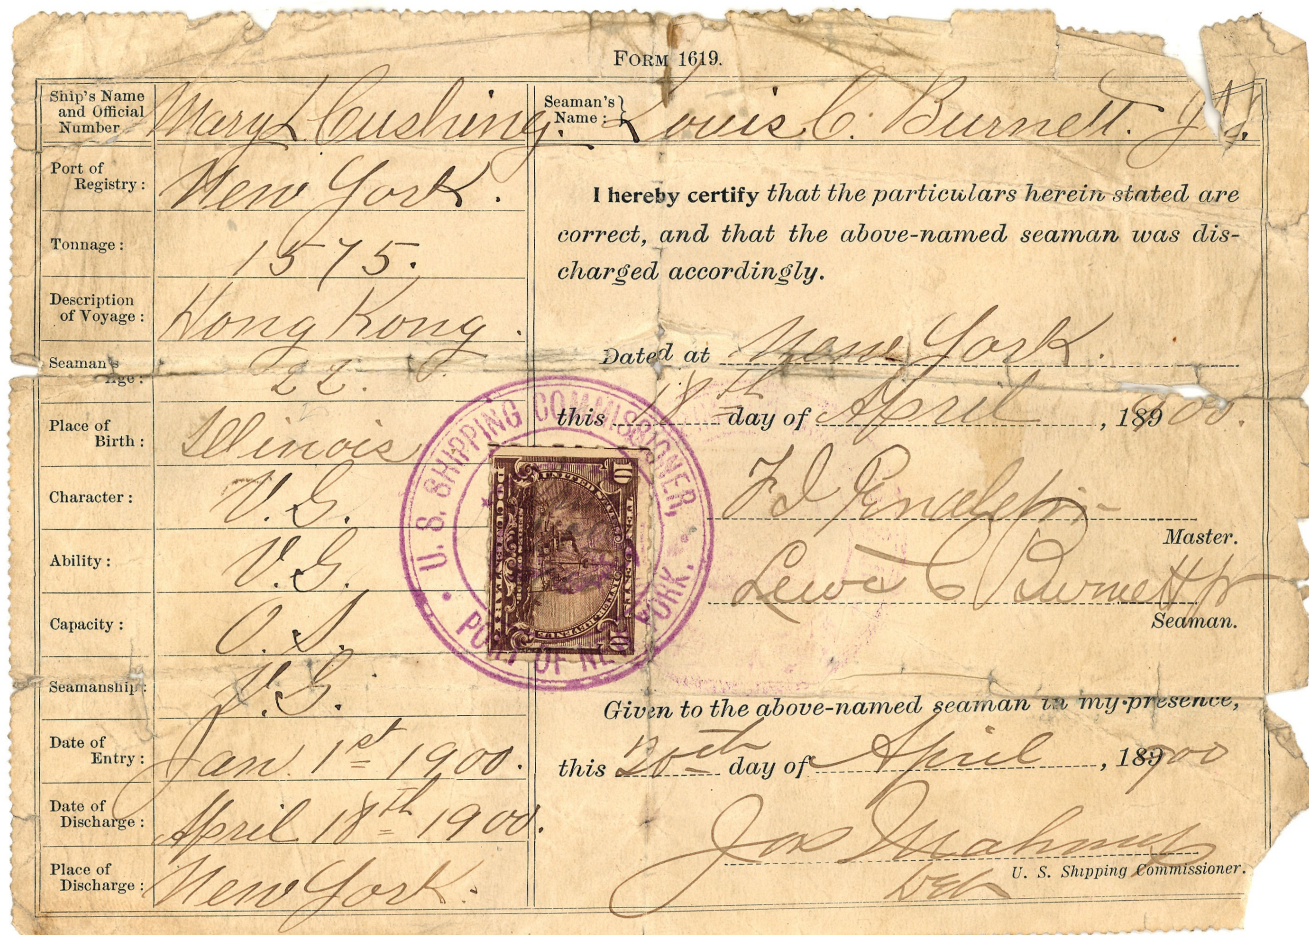 FORM 1619.
Ship's Name
and Official
Number
Mary L Cushing.
Seaman's
Name:
Louis C. Burnett. Jr.
Port of
Registry:
New York.
Tonnage:
1575.
Description
of Voyage:
Hong Kong.
Seaman's
Age:
22.
Place of
Birth:
Illinois
Character:
V.G.
Ability:
V.G.
Capacity:
O.S.
Seamanship:
V.G.
Date of
Entry:
Jan. 1st 1900.
Date of
Discharge:
April 18th 1900.
Place of
Discharge:
New York.
I hereby certify that the particulars herein stated are
correct, and that the above-named seaman was dis-
charged accordingly.
Dated at New York.
this 18th day of April, 1891900.
F J Pendleton
Master.
C Burnett Jr
Seaman.
Given to the above-named seaman in my presence,
this 20th day of April, 1891900
Jas Mahoney
U. S. Shipping Commissioner.
Dep
U. S. SHIPPING COMMISSIONER,
PORT OF NEW YORK.
10
UNITED STATES
10